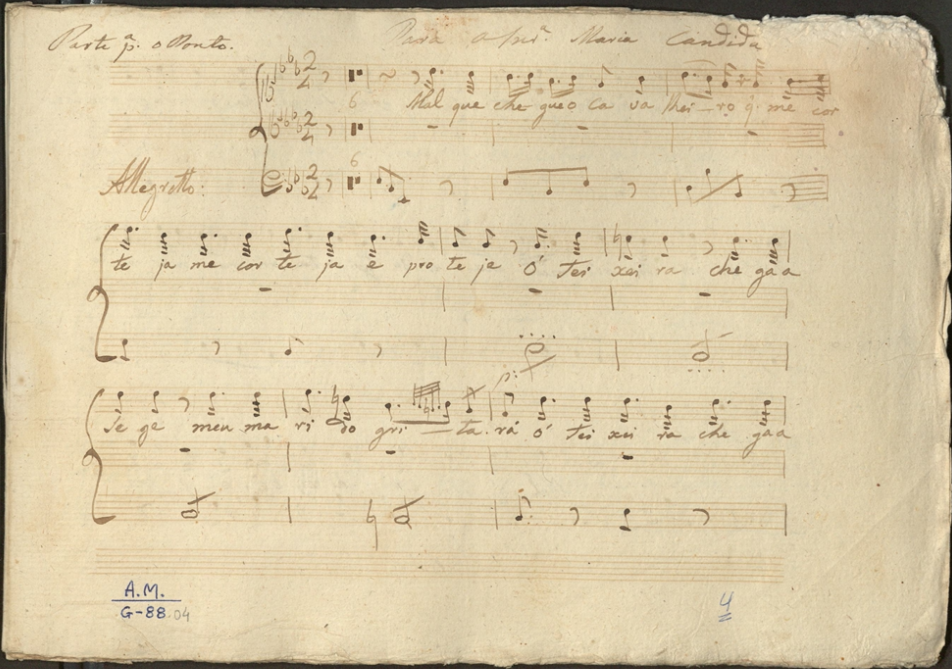 Parte pª. o Ponto. Para a Snrª. Maria Candida
2 4 6
Mal que che gue o ca va lhei ro q. me cor
2 4 6
Allegretto. 2 4
te ja me cor te ja e pro te je ó Tei xei ra che ga a
p:
Se ge meu ma ri do gri ta rá ó Tei xei ra che ga a
A.M.
G-88.04
4